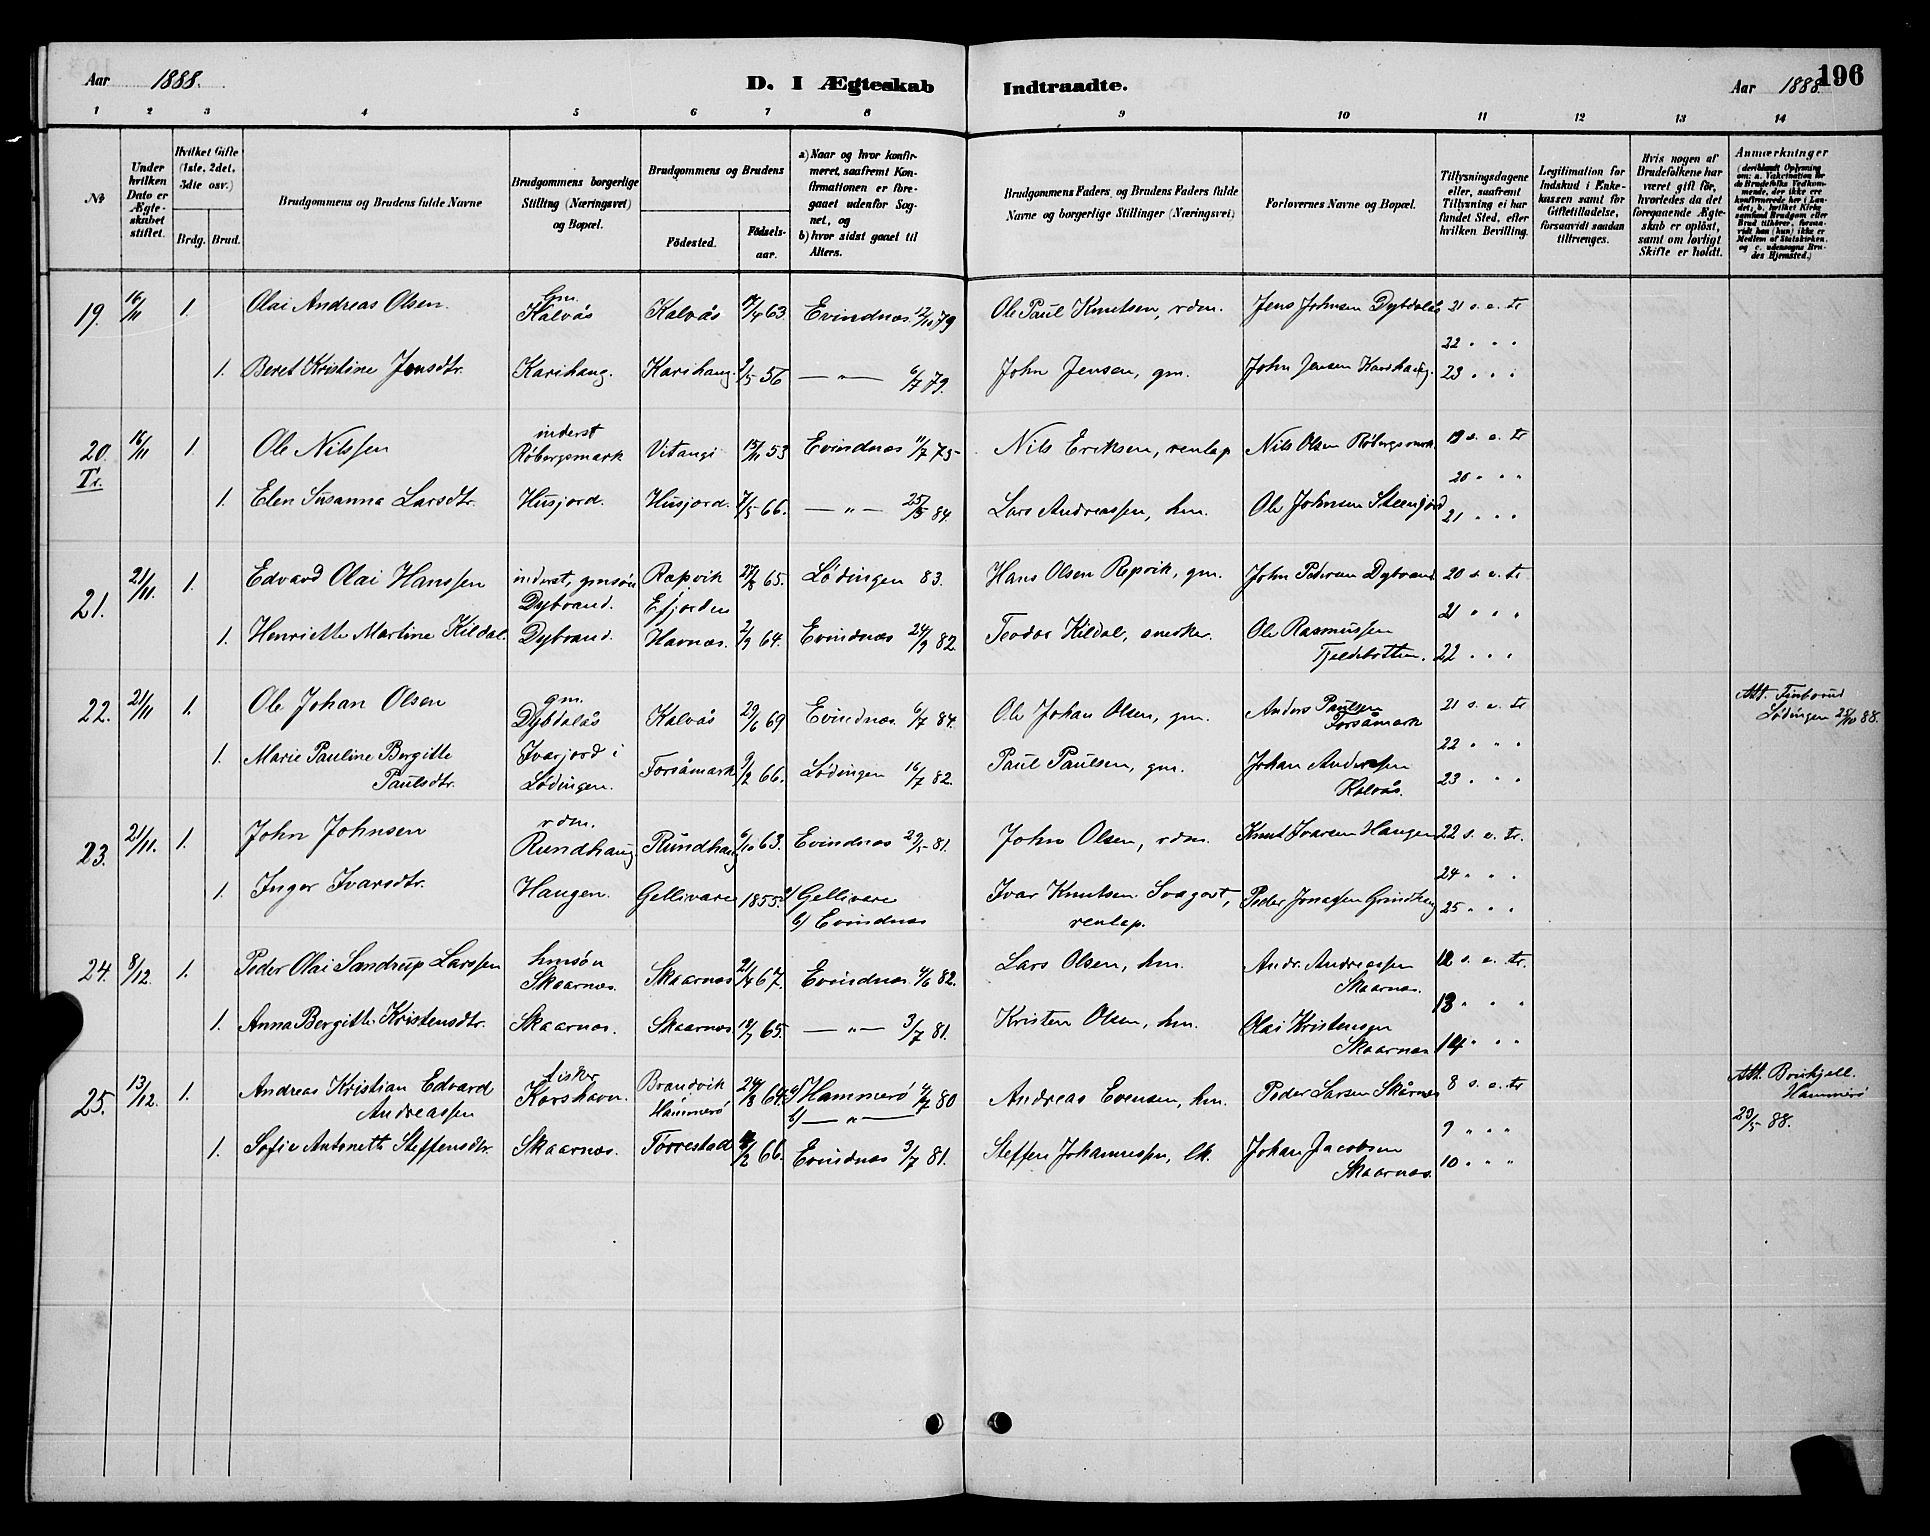 Aar 1888. D. I Ægteskab Indtraadte. Aar 1888. 196
1 2 3 4 5 6 7 8 9 10 11 12 13 14
№
Under hvilken Dato er Ægteskabet stiftet.
Hvilket Gifte (1ste, 2det, 3die osv.)
Brdg. Brud.
Brudgommens og Brudens fulde Navne
Brudgommens borgerlige Stilling (Næringsvei) og Bopæl.
Brudgommens og Brudens
Födested. Födselsaar.
a) Naar og hvor konfirmeret, saafremt Konfirmationen er foregaaet udenfor Sognet, og
b) hvor sidst gaaet til Alters.
Brudgommens Faders og Brudens Faders fulde Navne og borgerlige Stillinger (Næringsvei)
Forlovernes Navne og Bopæl.
Tillysningsdagene eller, saafremt Tillysning ei har fundet Sted, efter hvilken Bevilling.
Legitimation for Indskud i Enkekassen samt for Giftetilladelse, forsaavidt saadan tiltrænges.
Hvis nogen af Brudefolkene har været gift før, hvorledes da det foregaaende Ægteskab er oplöst, samt om lovligt Skifte er holdt.
Anmærkninger
(deriblandt Oplysning om: a. Vakcination for de Brudefolks Vedkommende, der ikke ere konfirmerede her i Landet; b. hvilket Kirkesamfund Brudgom eller Brud tilhörer, forsaavidt han (hun) ikke er Medlem af Statskirken, og c. udensogns Brudes Hjemsted.)
19. 16/11 1. Olai Andreas Olsen. Kalvås Kalvås 63. Evindnæs. 12/10 79 Ole Paul Knutsen, rdm. Jens Johnsen Dybdalås 21 s. e. tr
22 " " "
1. Beret Kristine Jensdtr. Karihaug. Karihaug. 9/5 56 — " — 6/7 79. John Jensen, gm. John Jensen Karihaug. 23 " " "
20. Tr. 16/11 1. Ole Nilssen inderst Röbergsmark Vitangi 15/11 53 Evindnæs 11/7 75 Nils Eriksen, renlap Nils Olsen Röbergsmark. 19 s. e. tr
20 " " "
1. Elen Susanna Larsdtr. Husjord. Husjord. 7/5 66. — " — 84. Lars Andreassen, hm. Ole Johnsen Steenjord 21 " " "
21. 21/11. 1. Edvard Olai Hanssen inderst, gmsön Dybvand. Rapvik Efjorden 65. Lödingen 83. Hans Olsen Repvik, gm. John Pedersen Dybvand 20 s. e. tr.
21 " " "
1. Henriette Martine Kildal. Dybvand. Havnæs. 2/9 64. Evindnæs 24/9 82. Teodor Kildal, snedker. Ole Rasmussen Tjeldebotten. 22 " " "
22. 21/11 1. Ole Johan Olsen gm. Dybdalås Kalvås 29/6 69 Evindnæs. 6/7 84. Ole Johan Olsen, gm. Anders Paulsen Forsåmark 21 s. e. tr Att. Lödingen 88.
22 " " "
1. Marie Pauline Bergitte Paulsdtr. Ivarjord i Lödingen. Forsåmark 9/2 66. Lödingen 16/7 82. Paul Paulsen, gm. Johan Andersen Kalvås. 23 " " "
23. 21/11. 1. John Johnsen rdm. Rundhaug. Rundhaug 6/10 63. Evindnæs 29/5 81. John Olsen, rdm. Knut Ivarsen Haugen 22 s. e. tr.
24 " " "
1. Inger Ivarsdtr. Haugen. Gellivare 1855. a) Gellivare b) Evindnæs Ivar Knutsen renlap. Peder 25 " " "
24. 8/12. 1. Peder Olai Sandrup Larssen hmsön Skaarnæs. Skaarnæs 21/4 67. Evindnæs 4/6 82. Lars Olsen, hm. Andr. Andreassen Skaarnæs. 12 s. e. tr.
13 " " "
1. Anna Bergitte Kristensdtr. Skaarnæs. Skaarnæs 65. — " — 3/7 81. Kristen Olsen, hm. Olai Kristensen Skaarnæs 14 " " "
25. 13/12. 1. Andreas Kristian Edvard Andreassen fisker Korshavn. Brandvik Hammerö 24/8 64. a) Hammerö 4/7 80 b) — " — Andreas Evensen, hm. Peder Larsen Skårnæs 8 s. e. tr Att. Hammerö 20/5 88.
9 " " "
1. Sofie Antonette Steffensdtr. Skaarnæs. Törrestad 66. Evindnæs 3/7 81. Steffen Johannessen, lk. Johan Jacobsen Skaarnæs. 10 " " "